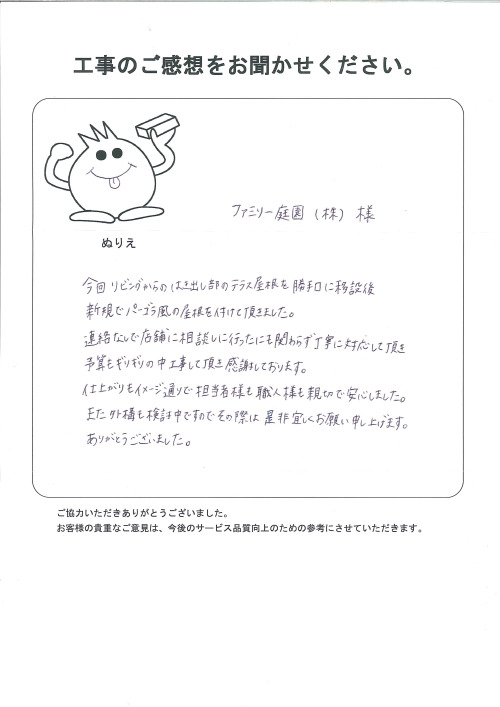 工事のご感想をお聞かせください。
ぬりえ
ファミリー庭園(株)様
今回リビングからのはき出し部のテラス屋根を勝手口に移設後
新規でパーゴラ風の屋根を付けて頂きました。
連絡なしで店舗に相談しに行ったにも関わらず丁寧に対応して頂き
予算もギリギリの中工事して頂き感謝しております。
仕上がりもイメージ通りで担当者様も職人様も親切で安心しました。
また外構も検討中ですのでその際は是非宜しくお願い申し上げます。
ありがとうございました。
ご協力いただきありがとうございました。
お客様の貴重なご意見は、今後のサービス品質向上のための参考にさせていただきます。